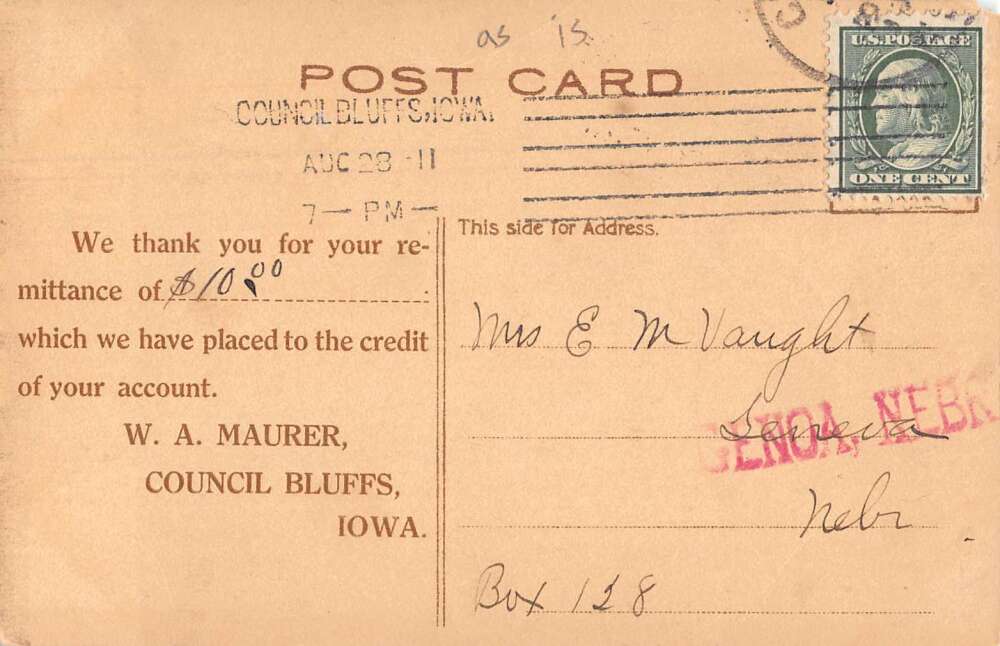 as is
POST CARD
U.S. POSTAGE
ONE CENT
COUNCIL BLUFFS, IOWA.
AUG 28 11
7 — PM —
We thank you for your re-
mittance of $10.00
which we have placed to the credit
of your account.
W. A. MAURER,
COUNCIL BLUFFS,
IOWA.
This side for Address.
Mrs E M Vaught
Geneva
GENOA, NEBR
Nebr
Box 128